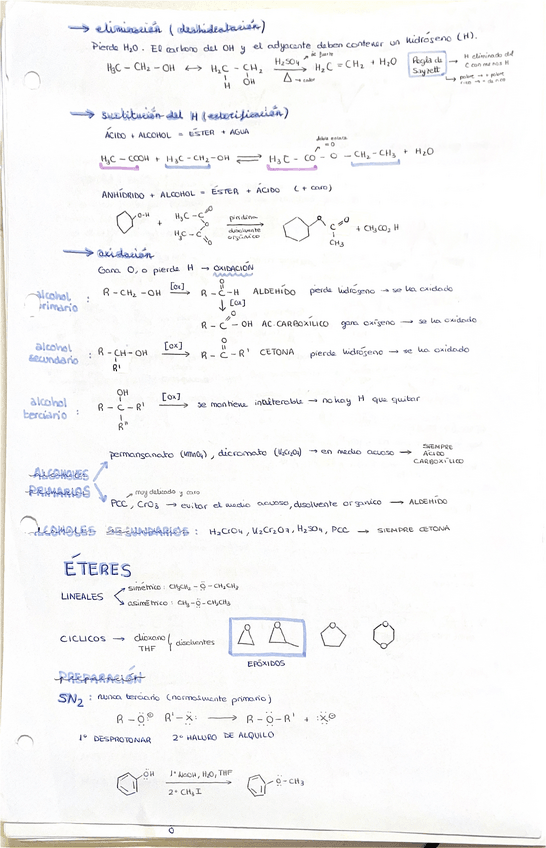 → eliminación (deshidratación)
Pierde H₂O. El carbono del OH y el adyacente deben contener un hidrógeno (H).
H₃C – CH₂ – OH ↔ H₂C – CH₂ H₂SO₄ → H₂C = CH₂ + H₂O
H OH Δ → calor
Regla de Saytzeff → H eliminado del C con menos H
→ sustitución del H (esterificación)
ÁCIDO + ALCOHOL = ÉSTER + AGUA
doble enlace = O
H₃C – COOH + H₃C – CH₂ – OH ⇌ H₃C – CO – O – CH₂ – CH₃ + H₂O
ANHÍDRIDO + ALCOHOL = ÉSTER + ÁCIDO (+ caro)
O-H + H₃C – C O O H₃C – C O piridina disolvente orgánico → O C O CH₃ + CH₃CO₂H
→ oxidación
Gana O, o pierde H → OXIDACIÓN
alcohol primario : R – CH₂ – OH [ox] → R – C – H O ALDEHÍDO pierde hidrógeno → se ha oxidado
↓ [ox]
R – C – OH O AC. CARBOXÍLICO gana oxígeno → se ha oxidado
alcohol secundario : R – CH – OH R' [ox] → R – C – R' O CETONA pierde hidrógeno → se ha oxidado
alcohol terciario : OH R – C – R' R'' [ox] → se mantiene inalterable → no hay H que quitar
ALCOHOLES PRIMARIOS
permanganato (KMnO₄), dicromato (K₂Cr₂O₇) → en medio acuoso → SIEMPRE ÁCIDO CARBOXÍLICO
muy delicado y caro
PCC, CrO₃ → evitar el medio acuoso, disolvente orgánico → ALDEHÍDO
ALCOHOLES SECUNDARIOS : H₂CrO₄, K₂Cr₂O₇, H₂SO₄, PCC → SIEMPRE CETONA
ÉTERES
LINEALES
simétrico : CH₃CH₂ – O – CH₂CH₃
asimétrico : CH₃ – O – CH₂CH₃
CÍCLICOS → dioxano THF disolventes
O O O O O
EPÓXIDOS
PREPARACIÓN
SN₂ : nunca terciario (normalmente primario)
R – O⊖ R' – X: → R – O – R' + :X⊖
1º DESPROTONAR 2º HALURO DE ALQUILO
OH 1º NaOH, H₂O, THF → O – CH₃
2º CH₃I